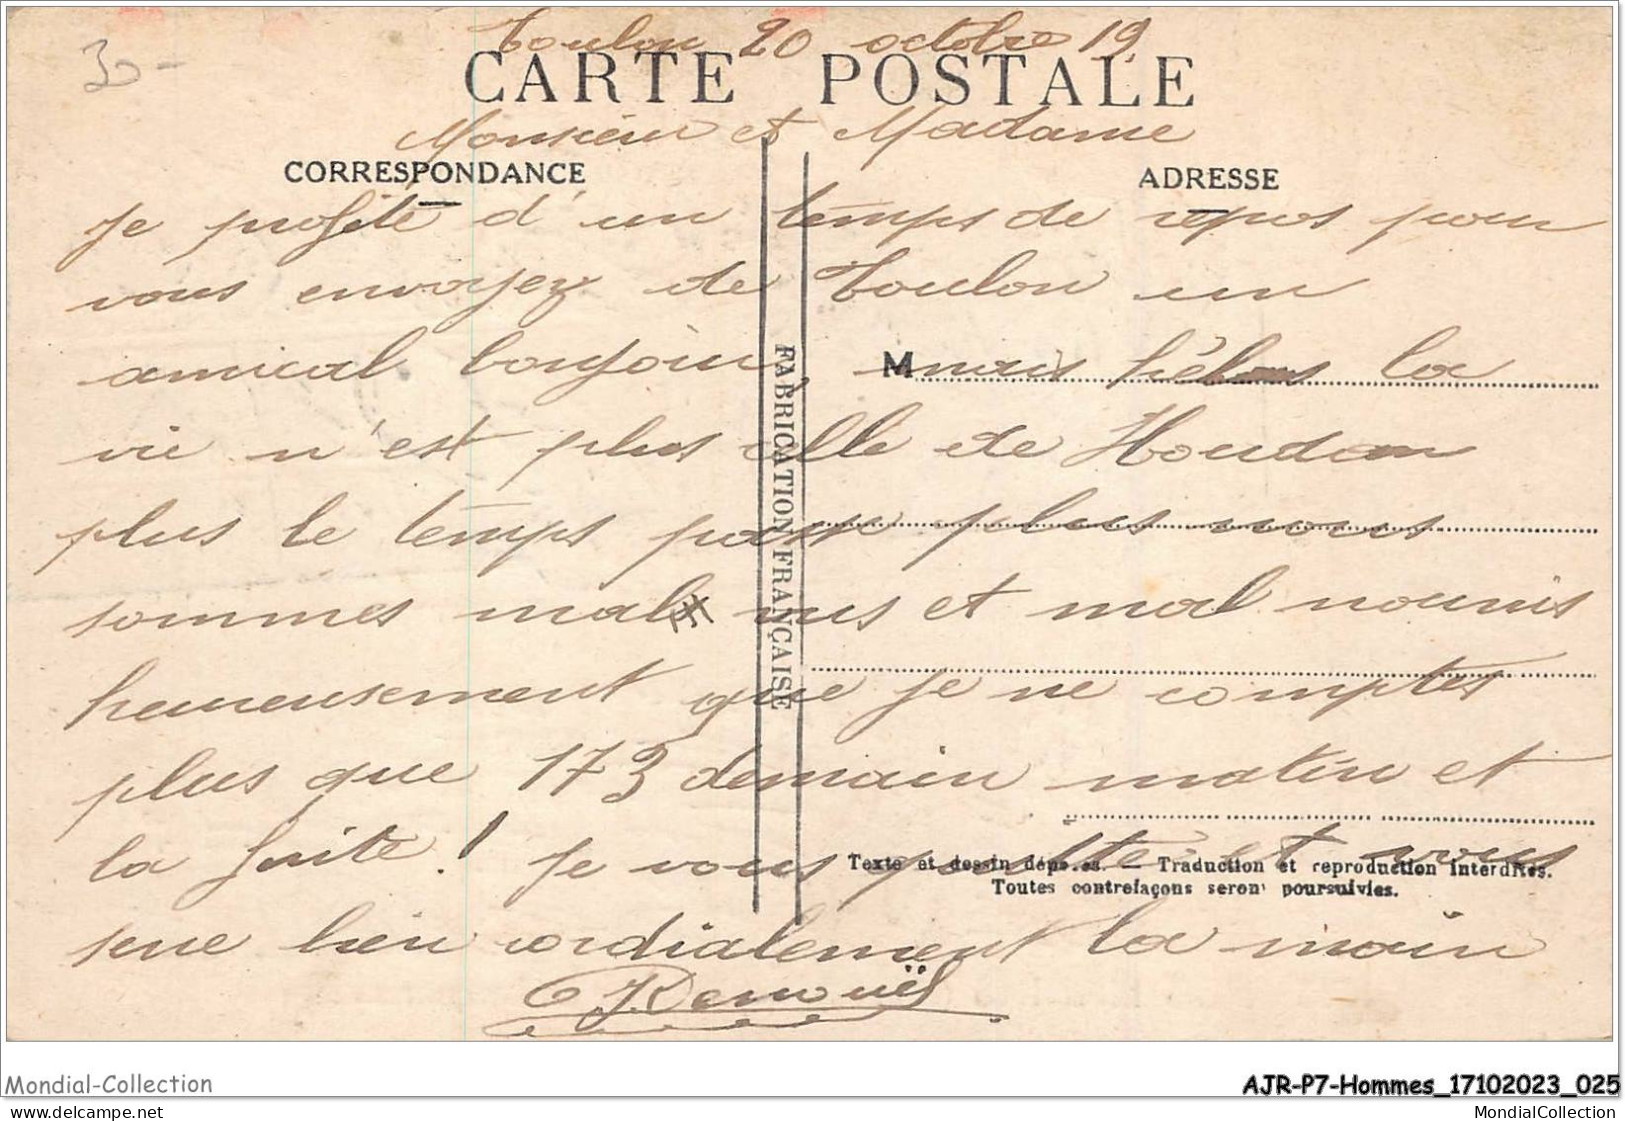 30-
Toulon 20 octobre 19
CARTE POSTALE
Monsieur et Madame
CORRESPONDANCE
ADRESSE
Je profite d'un temps de repos pour
vous envoyez de Toulon un
amical bonjour, M mais hélas la
vie n'est plus celle de Houdan
plus le temps passe plus nous
sommes mal vus et mal nourris
heureusement que je ne comptes
plus que 173 demain matin et
la fuite! Je vous quitte et vous
serre bien cordialement la main
FABRICATION FRANÇAISE
Texte et dessin déposés. — Traduction et reproduction interdites.
Toutes contrefaçons seront poursuivies.
Mondial-Collection
AJR-P7-Hommes_17102023_025
MondialCollection.net
MondialCollection